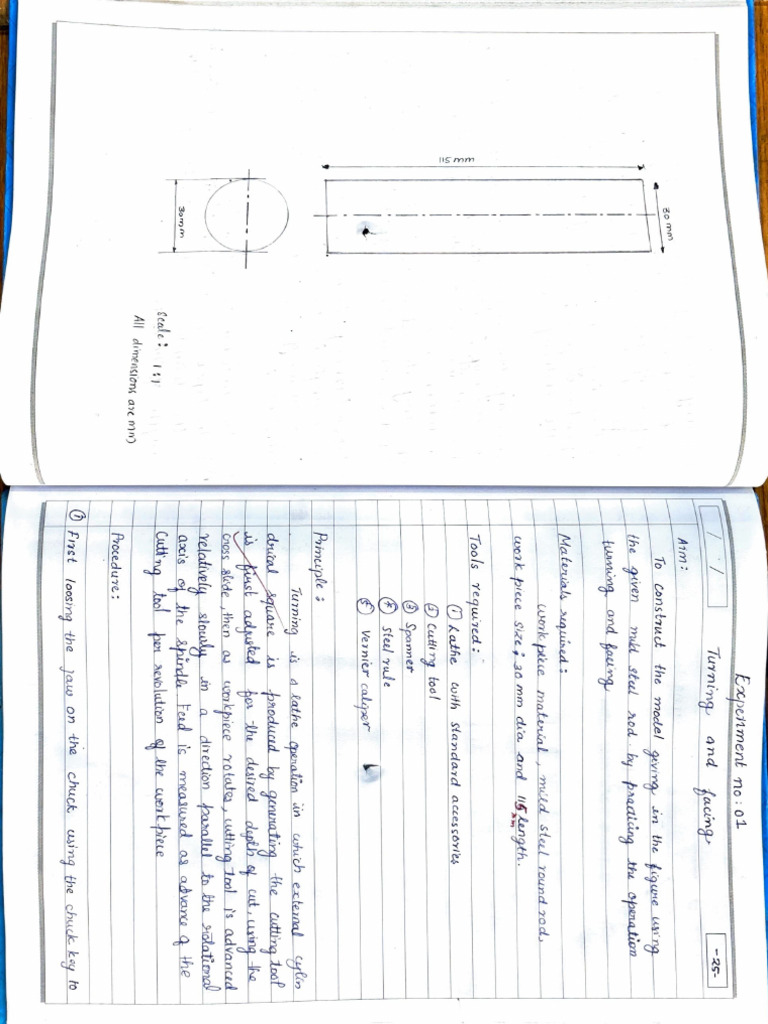 115 mm
30 mm
30mm
Scale: 1:1
All dimensions are mm)
Experiment no: 01
Turning and facing
-25-
Aim:
To construct the model giving in the figure using
the given mild steel rod by practicing the operation
turning and facing
Materials required:
work piece material, mild steel round rod,
work piece size: 30 mm dia and 115 mm length.
Tools required:
① Lathe with standard accessories
② Cutting tool
③ Spanner
④ Steel rule
⑤ Vernier caliper
Principle:
Turning is a lathe operation in which external cylin
drical square is produced by generating the cutting tool
is first adjusted for the desired depth of cut, using the
cross slide, then as workpiece rotates, cutting tool is advanced
relatively slowly in a direction parallel to the rotational
axis of the spindle Feed is measured as advance of the
cutting tool per revolution of the workpiece
Procedure:
① First loosing the jaw on the chuck using the chuck key to